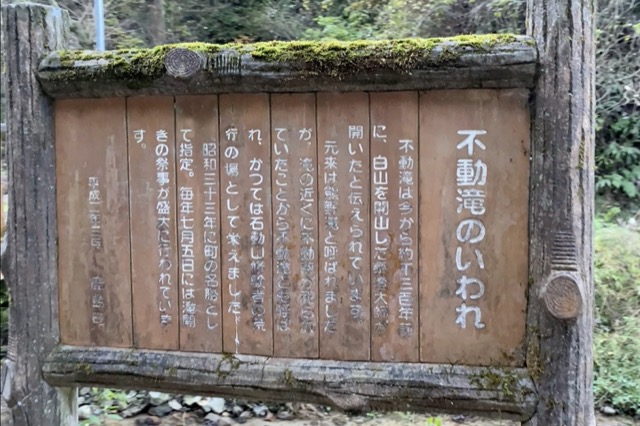 不動滝のいわれ
不動滝は今から約千三百年前
に、白山を開山した泰澄大師が
開いたと伝えられています。
元来は能勢滝と呼ばれました
が、滝の近くに不動尊が祀られ
ていたことから不動滝とも呼ば
れ、かつては石動山修験者の荒
行の場として栄えました。
昭和三十三年に町の名勝とし
て指定。毎年七月五日には滝開
きの祭事が盛大に行われていま
す。
平成二年三月